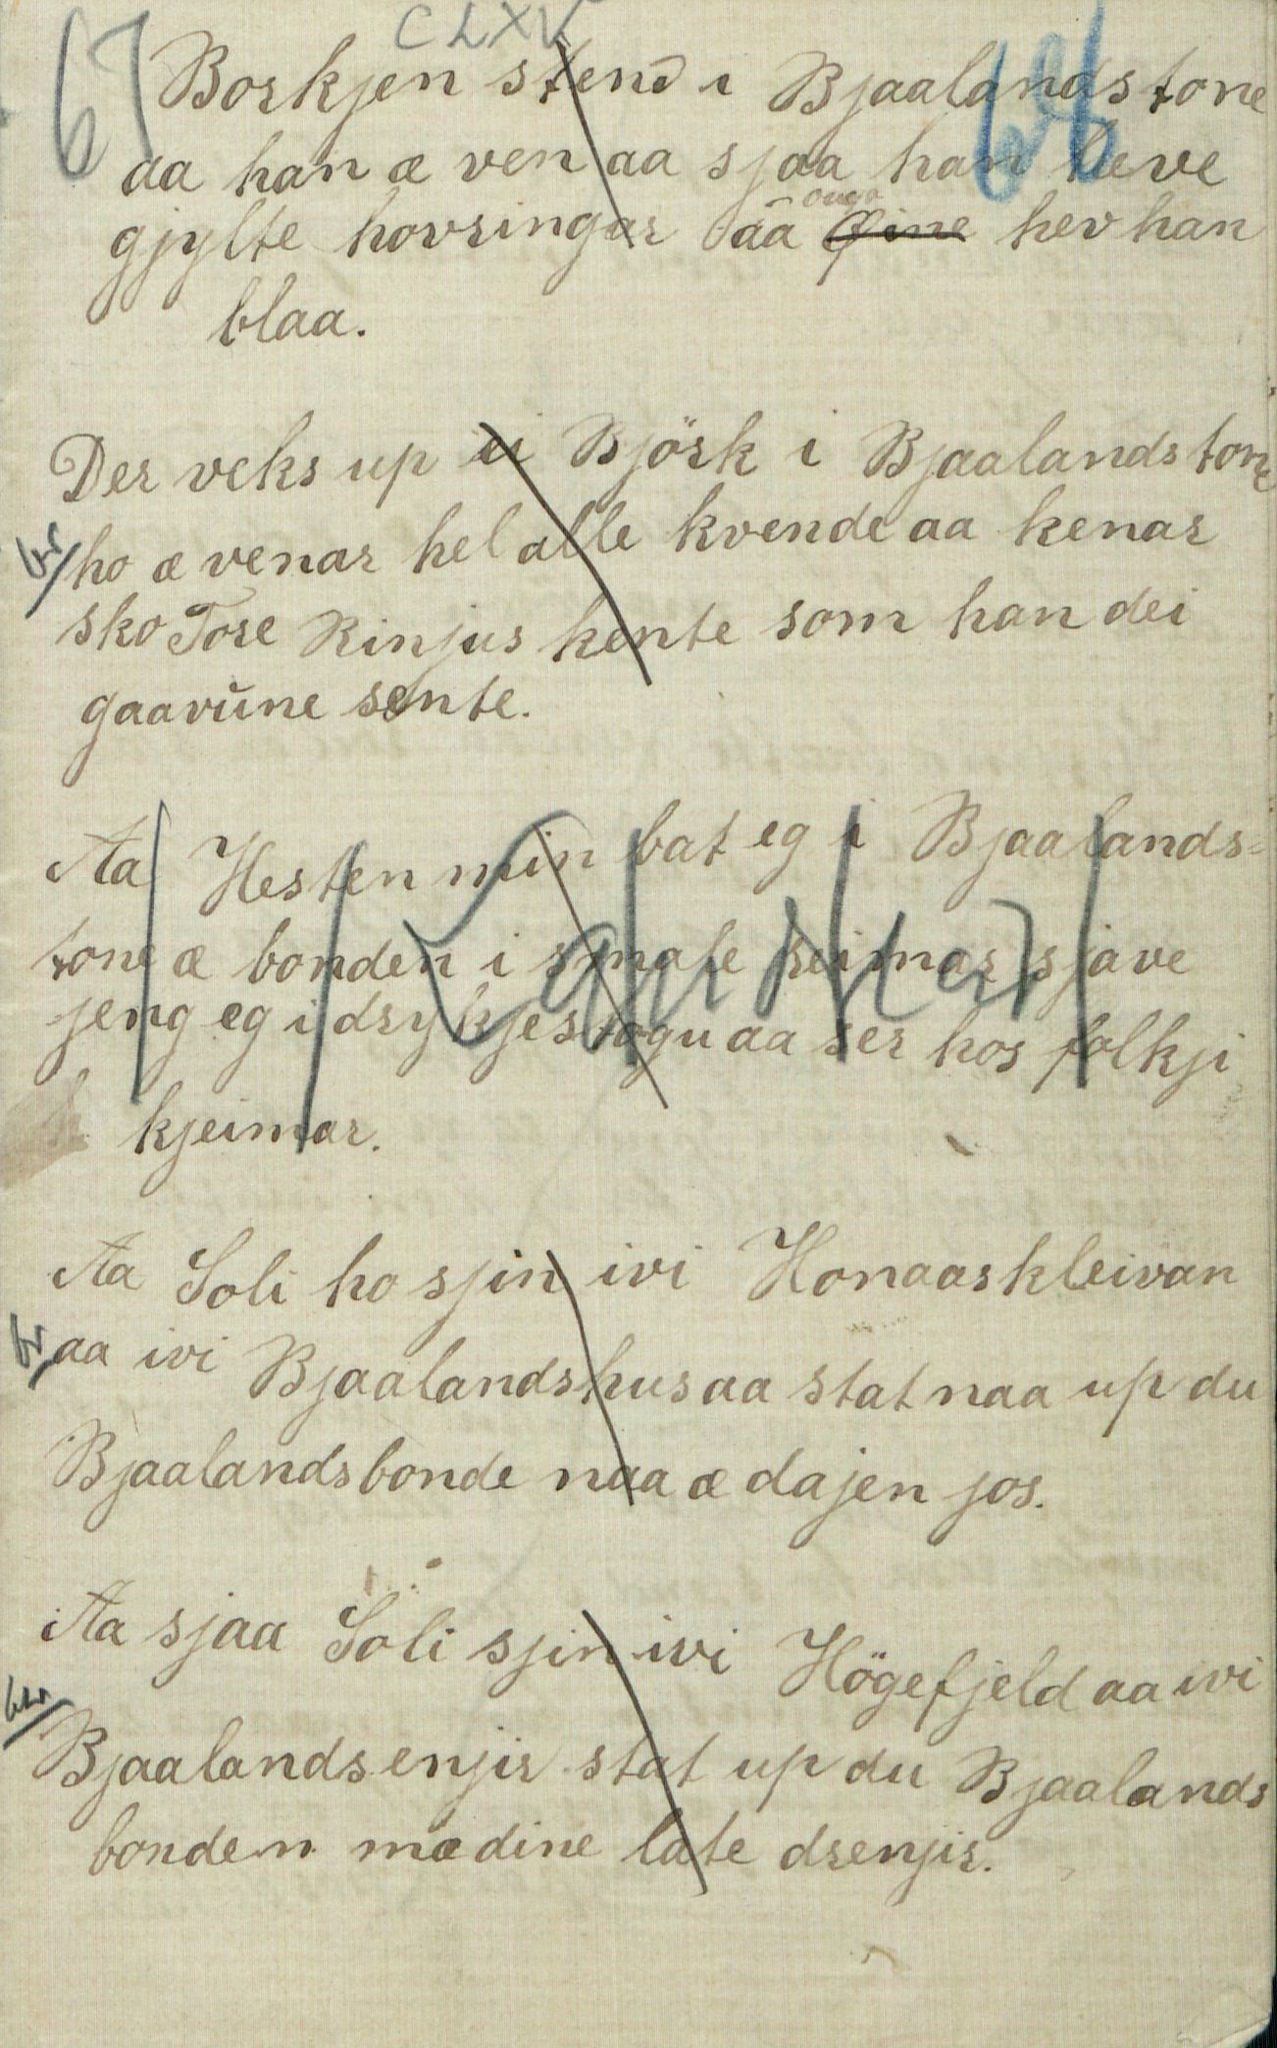 67 CLXV
Borkjen stend i Bjaalandstone
aa han æ ven aa sjaa han heve
gjylte hovringar aa ouga hev han
blaa.
Der veks up ei Björk i Bjaalandstone
br ho æ venar hel alle kvende aa kenar
sko Tore Rinjus kente som han dei
gaavune sente.
Aa Hesten min bat eg i Bjaalands-
tone æ bonden i smale reimar sjave
jeng eg i drykjestogu aa ser hos folkji
kjeimar.
Aa Soli ho sjin ivi Honaaskleivan
br aa ivi Bjaalandshus aa stat naa up du
Bjaalandsbonde naa æ dajen jos.
Aa sjaa Soli sjin ivi Högefjeld aa ivi
br Bjaalandsenjir stat up du Bjaalands
bonden mædine late drenjir.